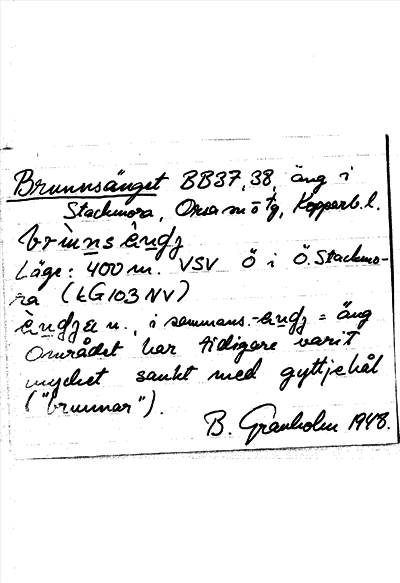 Brunnsänget BB37,38, äng i
Stackmora, Orsa
Läge: 400 m. VSV Ö i Ö. Stackmo-
ra (EG103 NV)
n., i sammans. = äng
Området har tidigare varit
mycket sankt med gyttjehål
("brunnar").
B. Granholm 1948.